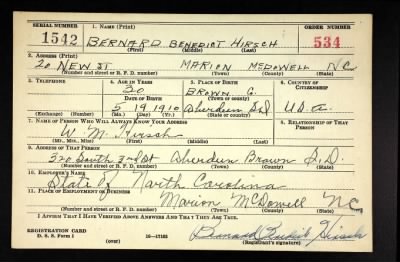 SERIAL NUMBER 1. NAME (Print) ORDER NUMBER
1542 BERNARD BENEDICT HIRSCH 534
(First) (Middle) (Last)
2. ADDRESS (Print)
20 NEW ST MARION McDOWELL N.C.
(Number and street or R. F. D. number) (Town) (County) (State)
3. TELEPHONE 4. AGE IN YEARS 5. PLACE OF BIRTH 6. COUNTRY OF CITIZENSHIP
30 BROWN C.
DATE OF BIRTH (Town or county)
5 19 1910 Aberdeen S.D. U.S.A.
(Exchange) (Number) (Mo.) (Day) (Yr.) (State or country)
7. NAME OF PERSON WHO WILL ALWAYS KNOW YOUR ADDRESS 8. RELATIONSHIP OF THAT PERSON
W. M. Hirsch
(Mr., Mrs., Miss) (First) (Middle) (Last)
9. ADDRESS OF THAT PERSON
320 South 3rd St Aberdeen Brown S.D.
(Number and street or R. F. D. number) (Town) (County) (State)
10. EMPLOYER'S NAME
State of North Carolina
11. PLACE OF EMPLOYMENT OR BUSINESS
Marion McDowell N.C.
(Number and street or R. F. D. number) (Town) (County) (State)
I AFFIRM THAT I HAVE VERIFIED ABOVE ANSWERS AND THAT THEY ARE TRUE.
REGISTRATION CARD
D. S. S. Form 1 (over) 16—17105 (Registrant's signature)
Bernard Hirsch